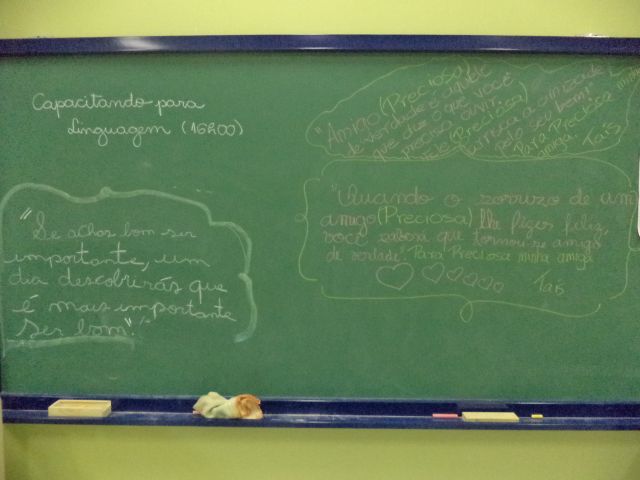 Capacitando para
Linguagem (16h00)
"Se achas bom ser
importante, um
dia descobrirás que
é mais importante
ser bom".
"Amigo (Preciosa)
de verdade é aquele
que diz o que você
precisa ouvir.
Ele (Preciosa)
arrisca a amizade
pelo seu bem!"
Para Preciosa minha
amiga. Tais
"Quando o sorriso de um
amigo (Preciosa) lhe fizer feliz,
você saberá que tornou-se amigo
de verdade". Para Preciosa minha amiga
Tais